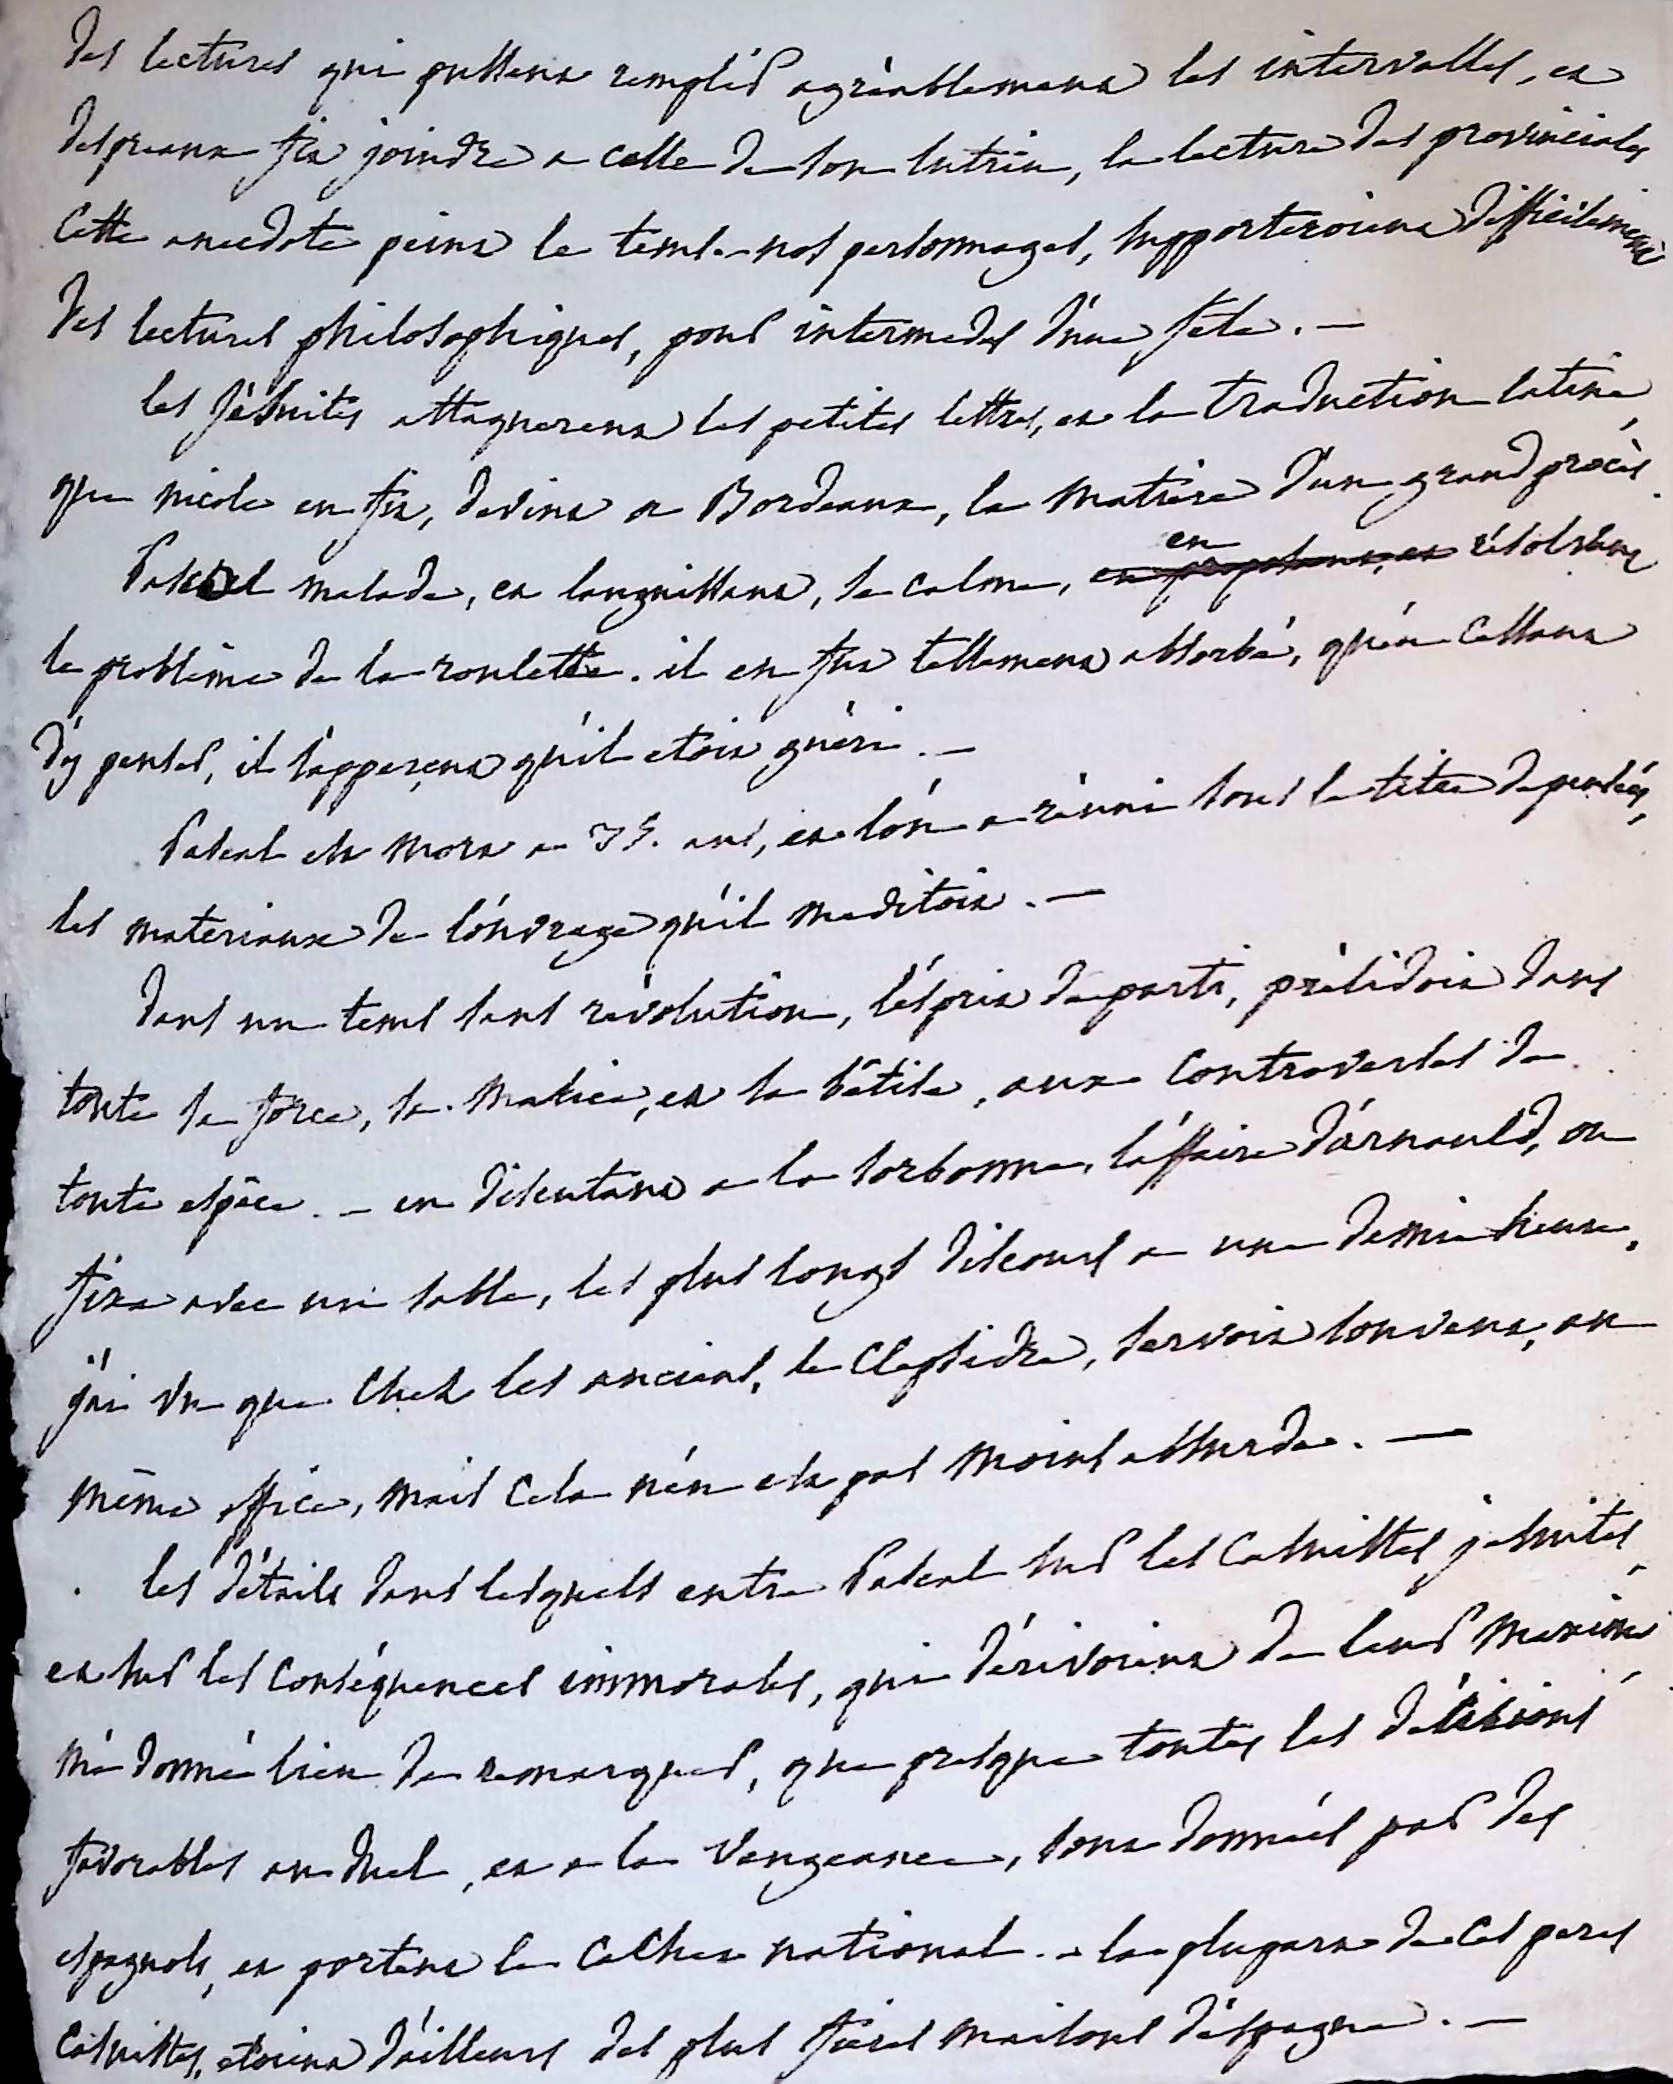 des lectures qui pussent remplir agréablement les intervalles, et
despreaux fit joindre a celle de son lutrin, la lecture des provinciales
Cette anecdote peint le tems. nos personnages, supporteroient difficilement
des lectures philosophiques, pour intermedes d'une fete. —
les Jésuites attaquerent les petites lettres, et la traduction latine,
que nicole en fit, devint a Bordeaux, la matière d'un grand procès.
Pascal malade, et languissant, se calme, en résolvant
le problème de la roulette. il en fut tellement absorbé, qu'en cessant
d'y penser, il s'apperçut qu'il etoit guéri. —
Pascal est mort a 39. ans, et l'on a réuni sous le titre de pensées,
les materiaux de l'ouvrage qu'il meditoit. —
dans un tems sans révolution, l'esprit de parti, présidoit dans
toute sa force, sa malice, et sa bêtise, aux controverses de
toute espèce. — en discutant a la sorbonne, l'affaire d'arnauld, on
fixa avec un sable, les plus longs discours a une demie heure,
j'ai vu que chez les anciens, la Clepsidre, servoit souvent, au
même office, mais cela n'en est pas moins absurde. —
les détails dans lesquels entre Pascal sur les Casuistes jesuites,
et sur les conséquences immorales, qui dérivoient de leurs maximes,
m'a donné lieu de remarquer, que presque toutes les décisions
favorables au duel, et a la vengeance, sont données par des
espagnols, et portent le cachet national. — la plupart de ces peres
Casuistes, etoient d'ailleurs des plus fieres maisons d'espagne. —